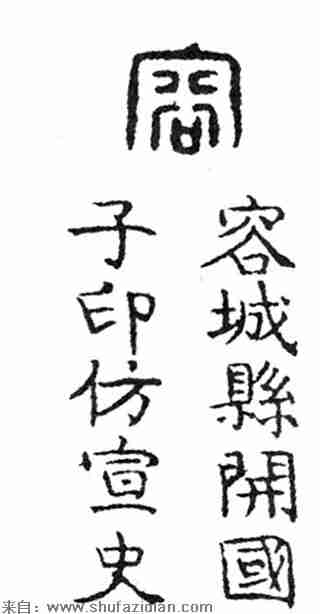 容
容城縣開國
子印仿宣史
来自：www.shufazidian.com